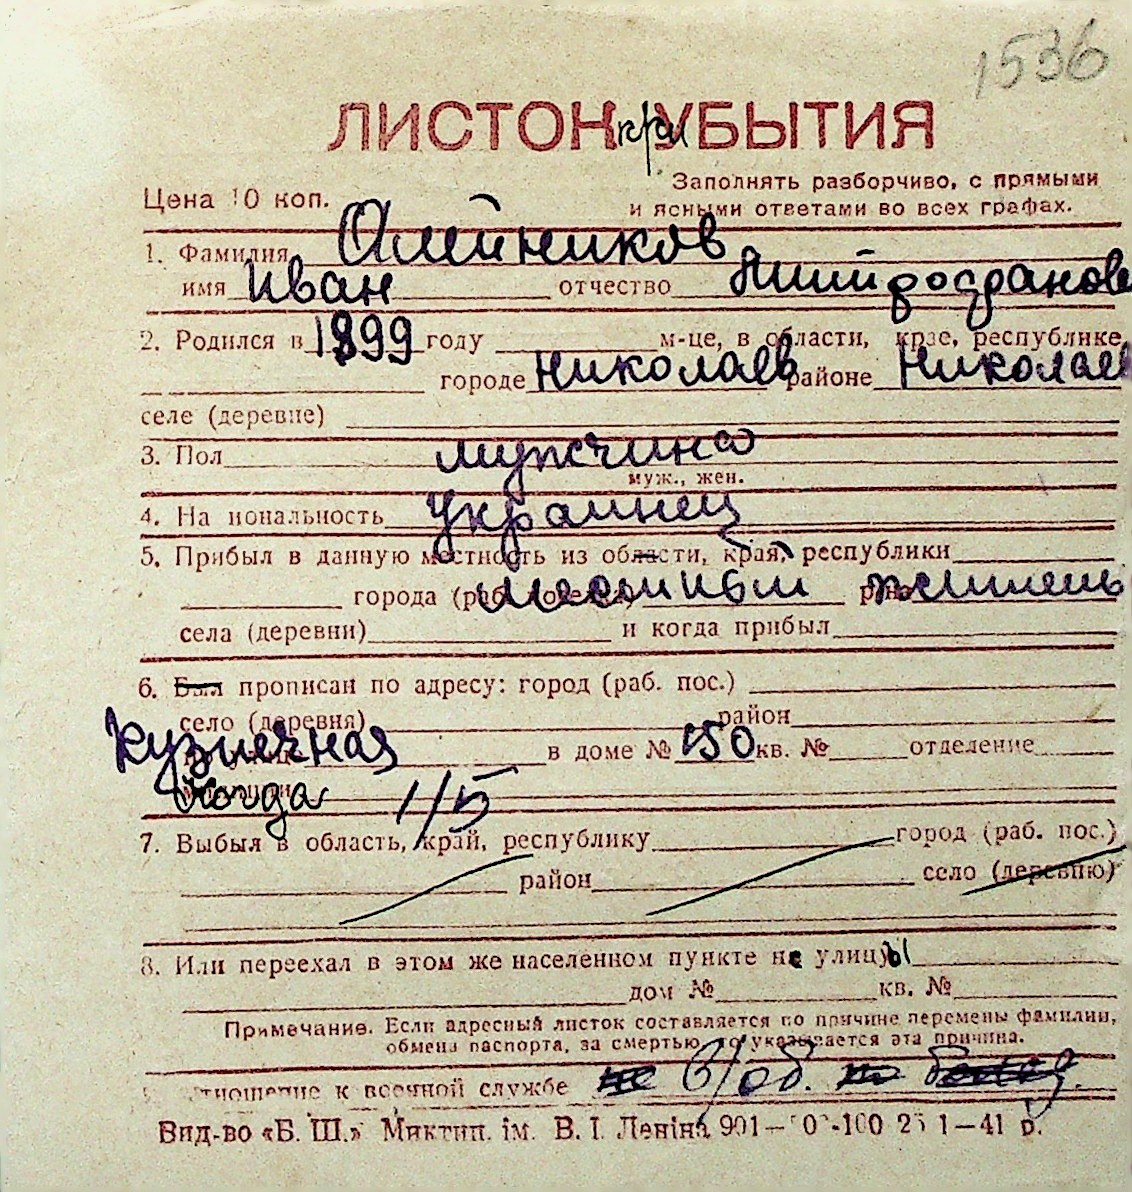 1536
ЛИСТОК УБЫТИЯ
Цена 10 коп.
Заполнять разборчиво, с прямыми
и ясными ответами во всех графах.
1. Фамилия Олейников
имя Иван отчество Митрофанов
2. Родился в 1899 году м-це, в области, крае, республике
городе Николаев районе Николаев
селе (деревне)
3. Пол мужчина
муж., жен.
4. На иональность украинец
5. Прибыл в данную местность из области, края, республики
города (раб. поселка) местный житель
села (деревни) и когда прибыл
6. Был прописан по адресу: город (раб. пос.)
село (деревня) район
Кузнечная в доме № 150 кв. № отделение
милиции Когда 1/5
7. Выбыл в область, край, республику город (раб. пос.)
район село (деревню)
8. Или переехал в этом же населенном пункте не улицы
дом № кв. №
Примечание. Если адресный листок составляется по причине перемены фамилии,
обмена паспорта, за смертью, то указывается эта причина.
отношение к военной службе не в/об.
Вид-во «Б. Ш.» Миктип. ім. В. І. Леніна 901— -100 25 1—41 р.